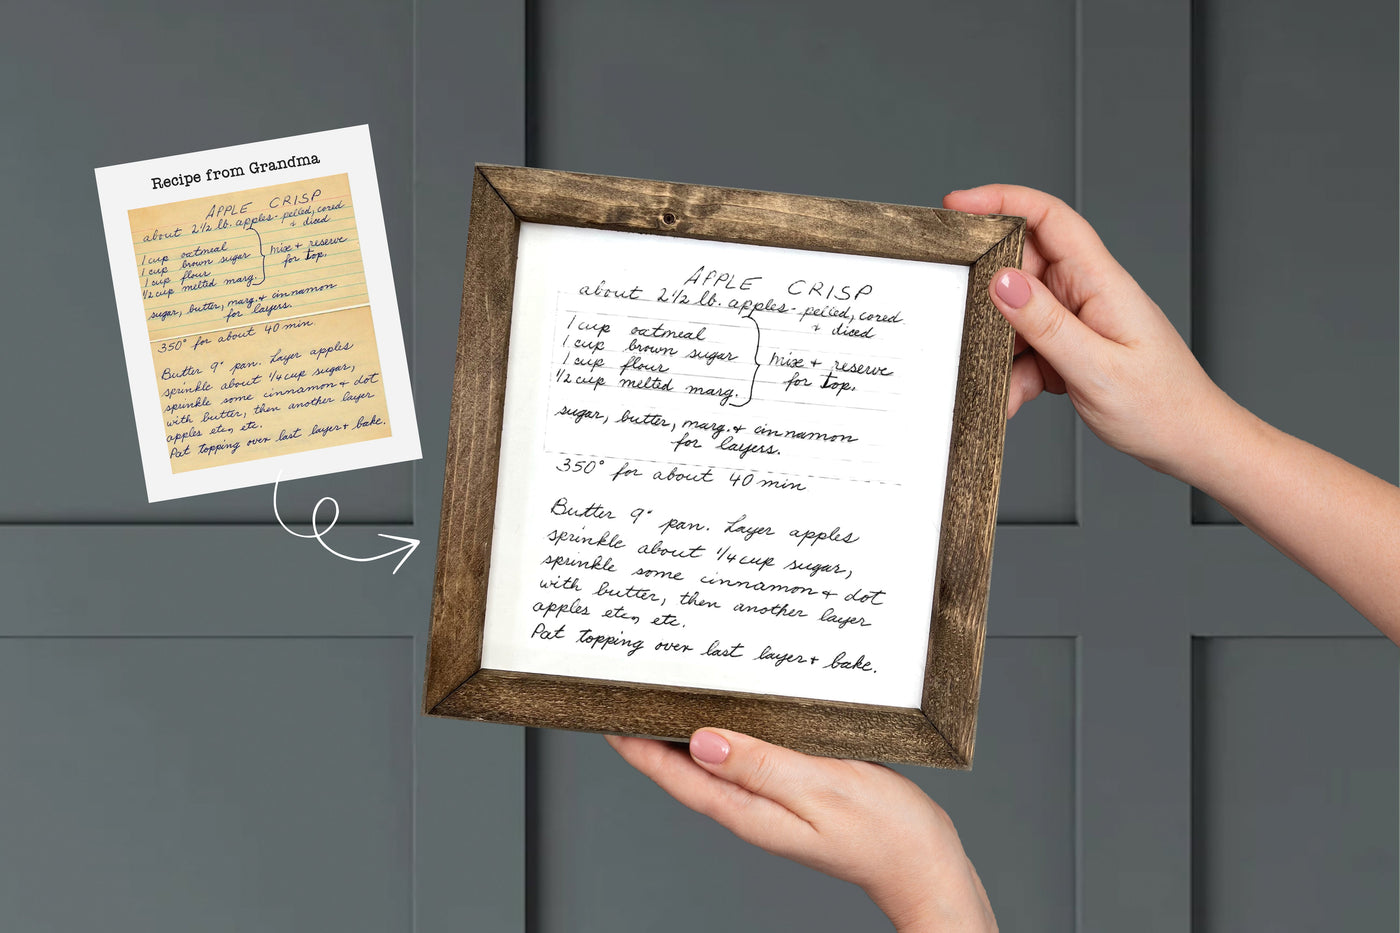 Recipe from Grandma
APPLE CRISP
about 2 1/2 lb. apples - pelled, cored
+ diced
1 cup oatmeal
1 cup brown sugar
1 cup flour
1/2 cup melted marg.
mix + reserve
for top.
sugar, butter, marg. + cinnamon
for layers.
350° for about 40 min
Butter 9" pan. Layer apples
sprinkle about 1/4 cup sugar,
sprinkle some cinnamon + dot
with butter, then another layer
apples etc, etc.
Pat topping over last layer + bake.
APPLE CRISP
about 2 1/2 lb. apples - pelled, cored
+ diced
1 cup oatmeal
1 cup brown sugar
1 cup flour
1/2 cup melted marg.
mix + reserve
for top.
sugar, butter, marg. + cinnamon
for layers.
350° for about 40 min
Butter 9" pan. Layer apples
sprinkle about 1/4 cup sugar,
sprinkle some cinnamon + dot
with butter, then another layer
apples etc, etc.
Pat topping over last layer + bake.